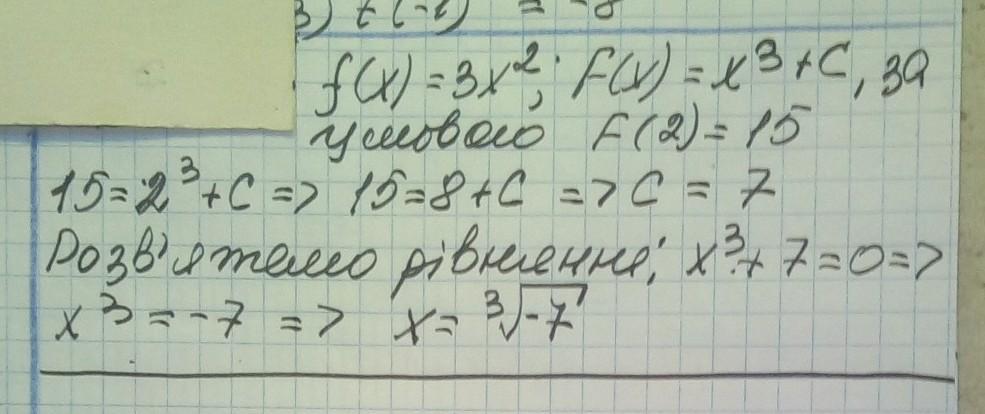 3) f(-1) = -8
f(x) = 3x²; F(x) = x³ + C, за
умовою F(2) = 15
15 = 2³ + C => 15 = 8 + C => C = 7
Розв'яжемо рівняння; x³ + 7 = 0 =>
x³ = -7 => x = ³√-7